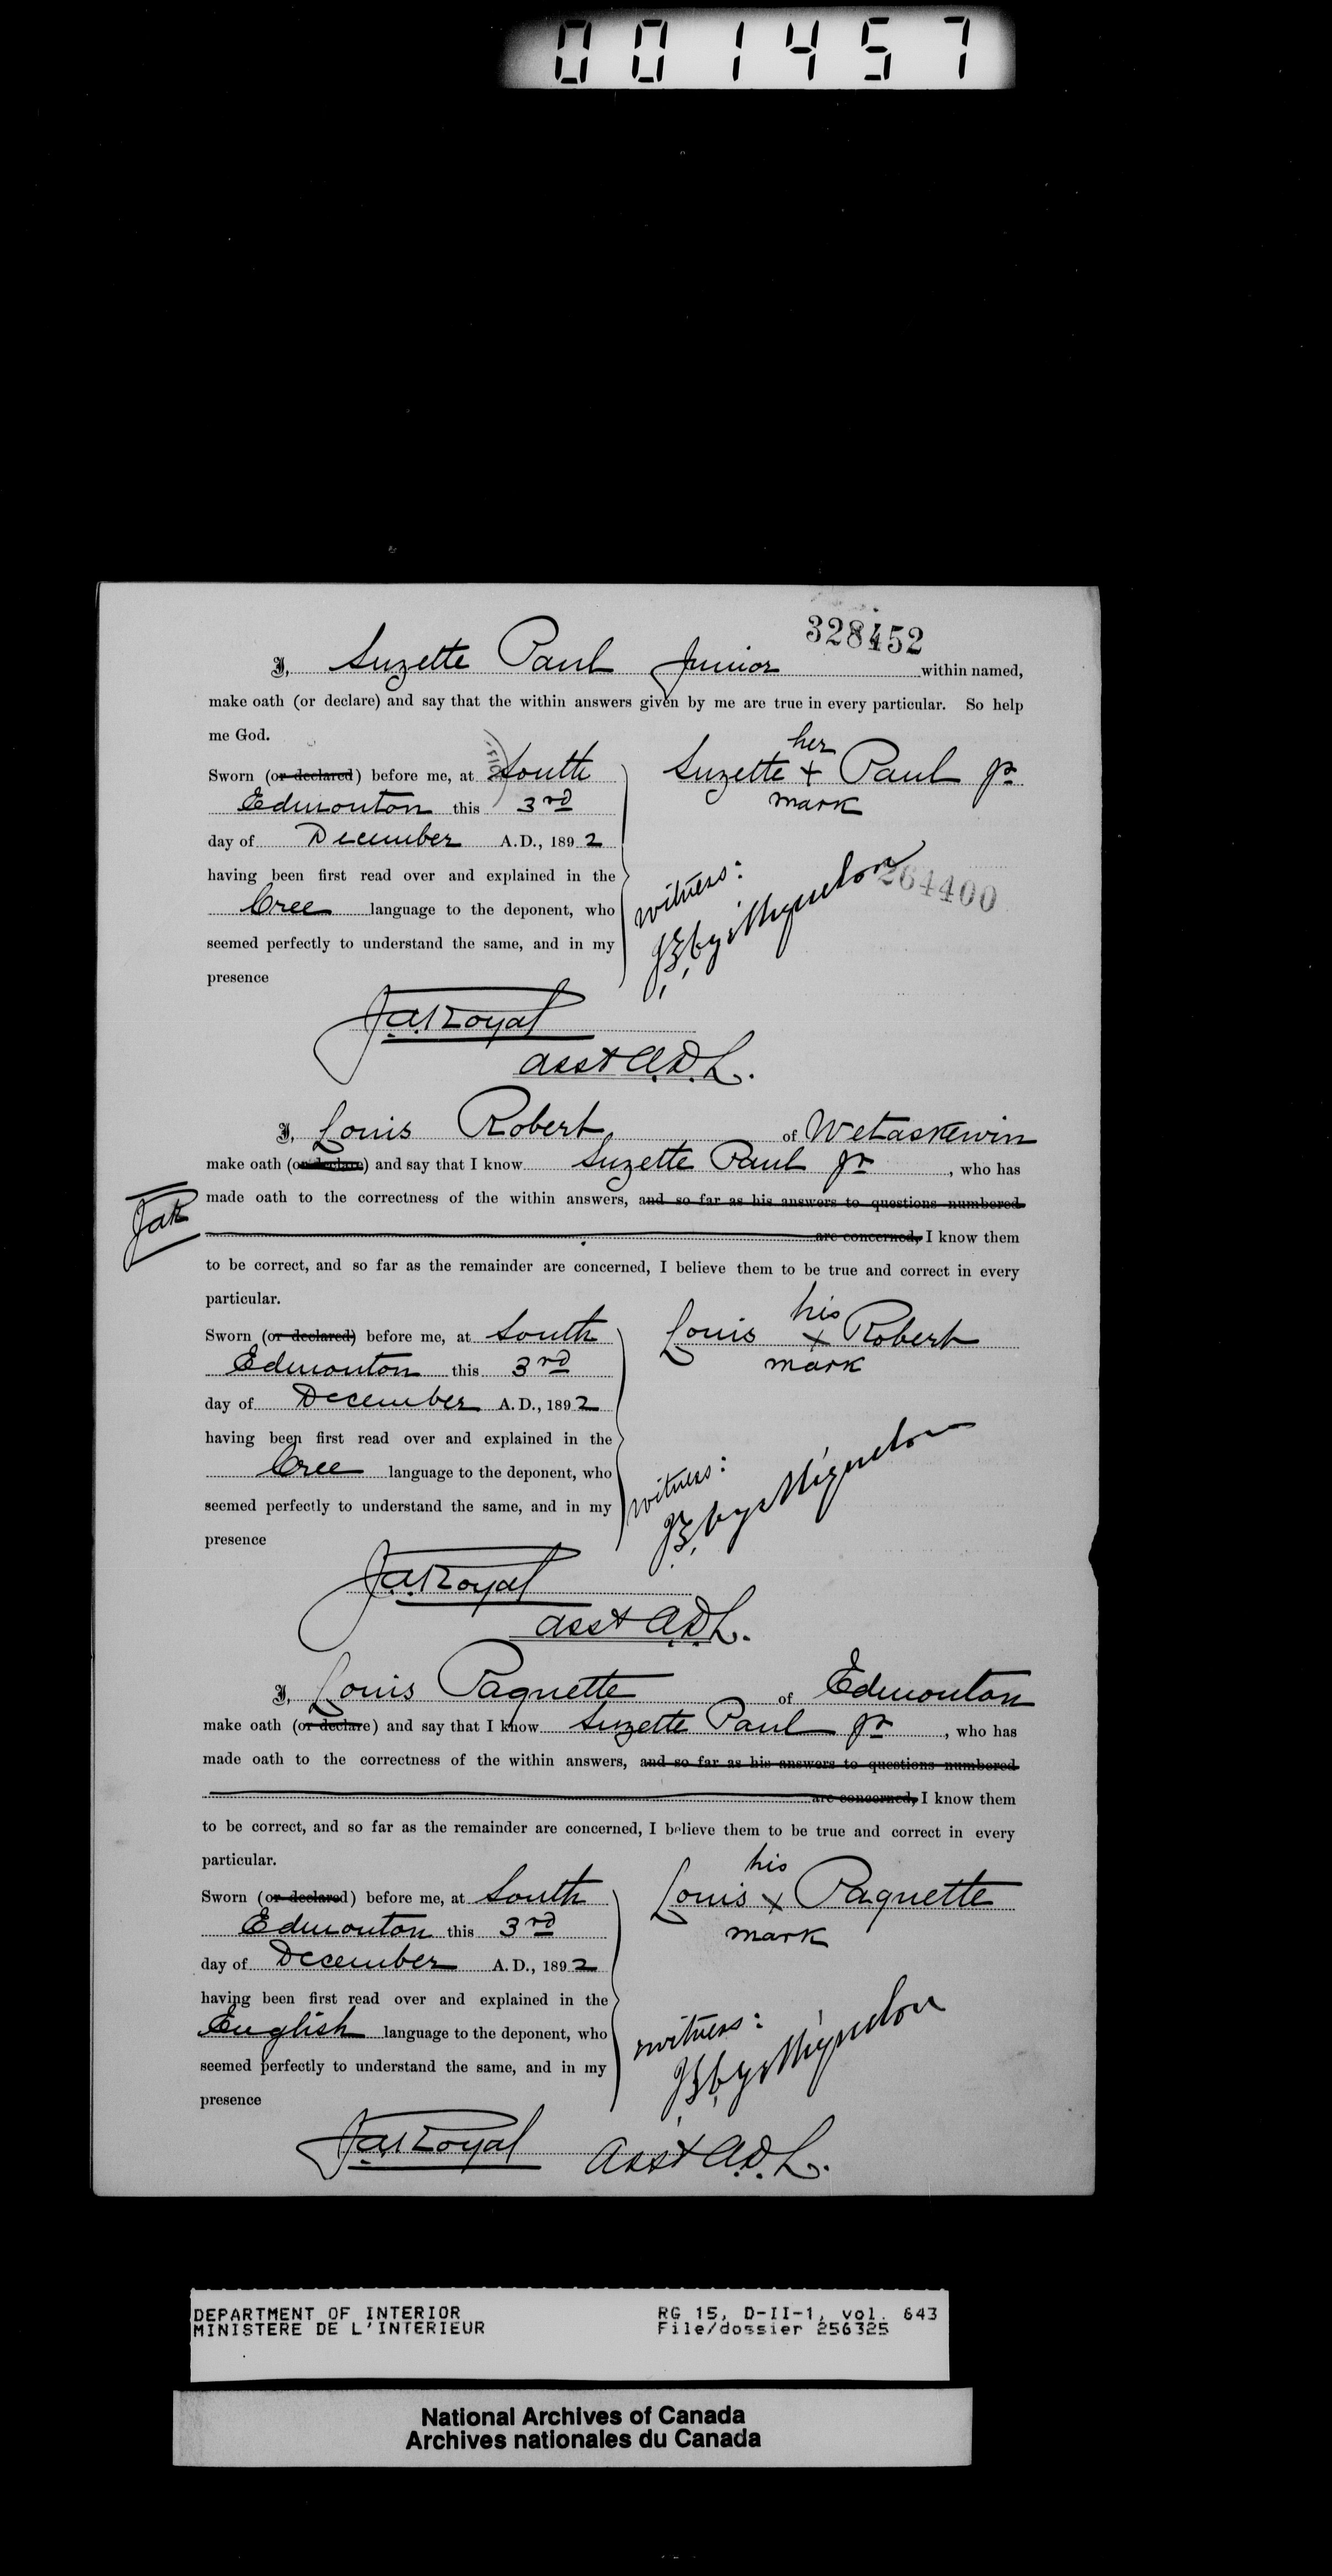 001457
328452
I, Suzette Paul Junior within named,
make oath (or declare) and say that the within answers given by me are true in every particular. So help
me God.
her
Sworn (or declared) before me, at South Suzette + Paul Jr
Edmonton this 3rd mark
day of December A.D., 1892
having been first read over and explained in the witness:
264400
Cree language to the deponent, who
seemed perfectly to understand the same, and in my
presence
J.A. Royal
asst A.D.L.
I, Louis Robert of Wetaskewin
make oath (or declare) and say that I know Suzette Paul Jr , who has
made oath to the correctness of the within answers, and so far as his answers to questions numbered
JAR
are concerned, I know them
to be correct, and so far as the remainder are concerned, I believe them to be true and correct in every
particular.
his
Sworn (or declared) before me, at South Louis x Robert
Edmonton this 3rd mark
day of December A.D., 1892
having been first read over and explained in the
Cree language to the deponent, who witness:
seemed perfectly to understand the same, and in my
presence
J.A. Royal
asst A.D.L.
I, Louis Paquette of Edmonton
make oath (or declare) and say that I know Suzette Paul Jr , who has
made oath to the correctness of the within answers, and so far as his answers to questions numbered
are concerned, I know them
to be correct, and so far as the remainder are concerned, I believe them to be true and correct in every
particular.
his
Sworn (or declared) before me, at South Louis x Paquette
Edmonton this 3rd mark
day of December A.D., 1892
having been first read over and explained in the
English language to the deponent, who witness:
seemed perfectly to understand the same, and in my
presence
J.A. Royal asst A.D.L.
DEPARTMENT OF INTERIOR RG 15, D-II-1, vol. 643
MINISTERE DE L'INTERIEUR File/dossier 256325
National Archives of Canada
Archives nationales du Canada